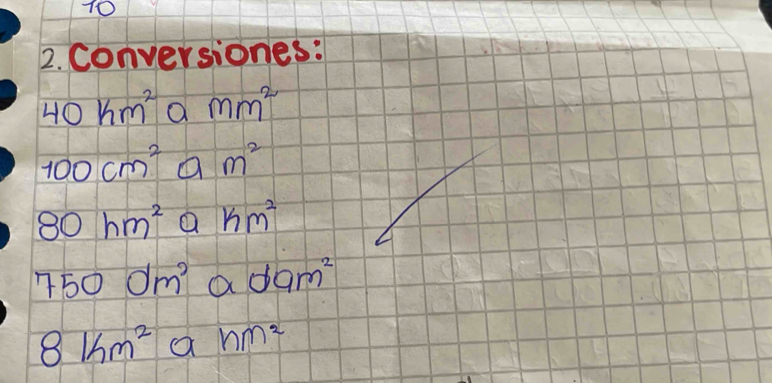 10
2. Conversiones:
40 km² a mm²
100 cm² a m²
80 hm² a km²
750 dm² a dam²
8 km² a hm²